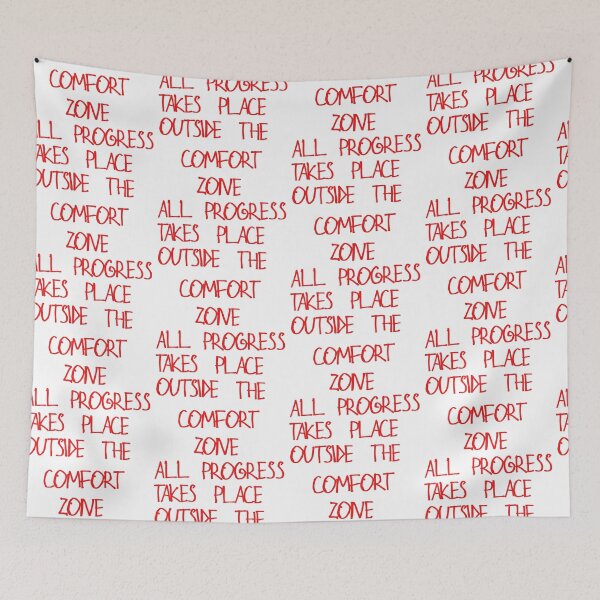 COMFORT
ZONE
ALL PROGRESS
TAKES PLACE
OUTSIDE THE
COMFORT
ZONE
ALL PROGRESS
TAKES PLACE
OUTSIDE THE
COMFORT
ZONE
ALL PROGRESS
TAKES PLACE
OUTSIDE THE
COMFORT
ZONE
ALL PROGRESS
TAKES PLACE
OUTSIDE THE
COMFORT
ZONE
ALL PROGRESS
TAKES PLACE
OUTSIDE THE
COMFORT
ZONE
ALL PROGRESS
TAKES PLACE
OUTSIDE THE
COMFORT
ZONE
ALL PROGRESS
TAKES PLACE
OUTSIDE THE
COMFORT
ZONE
ALL PROGRESS
TAKES PLACE
OUTSIDE THE
COMFORT
ZONE
ALL PROGRESS
TAKES PLACE
OUTSIDE THE
COMFORT
ZONE
ALL PROGRESS
TAKES PLACE
OUTSIDE THE
COMFORT
ZONE
ALL PROGRESS
TAKES PLACE
OUTSIDE THE
COMFORT
ZONE
ALL PROGRESS
TAKES PLACE
OUTSIDE THE
COMFORT
ZONE
ALL PROGRESS
TAKES PLACE
OUTSIDE THE
COMFORT
ZONE
ALL PROGRESS
TAKES PLACE
OUTSIDE THE